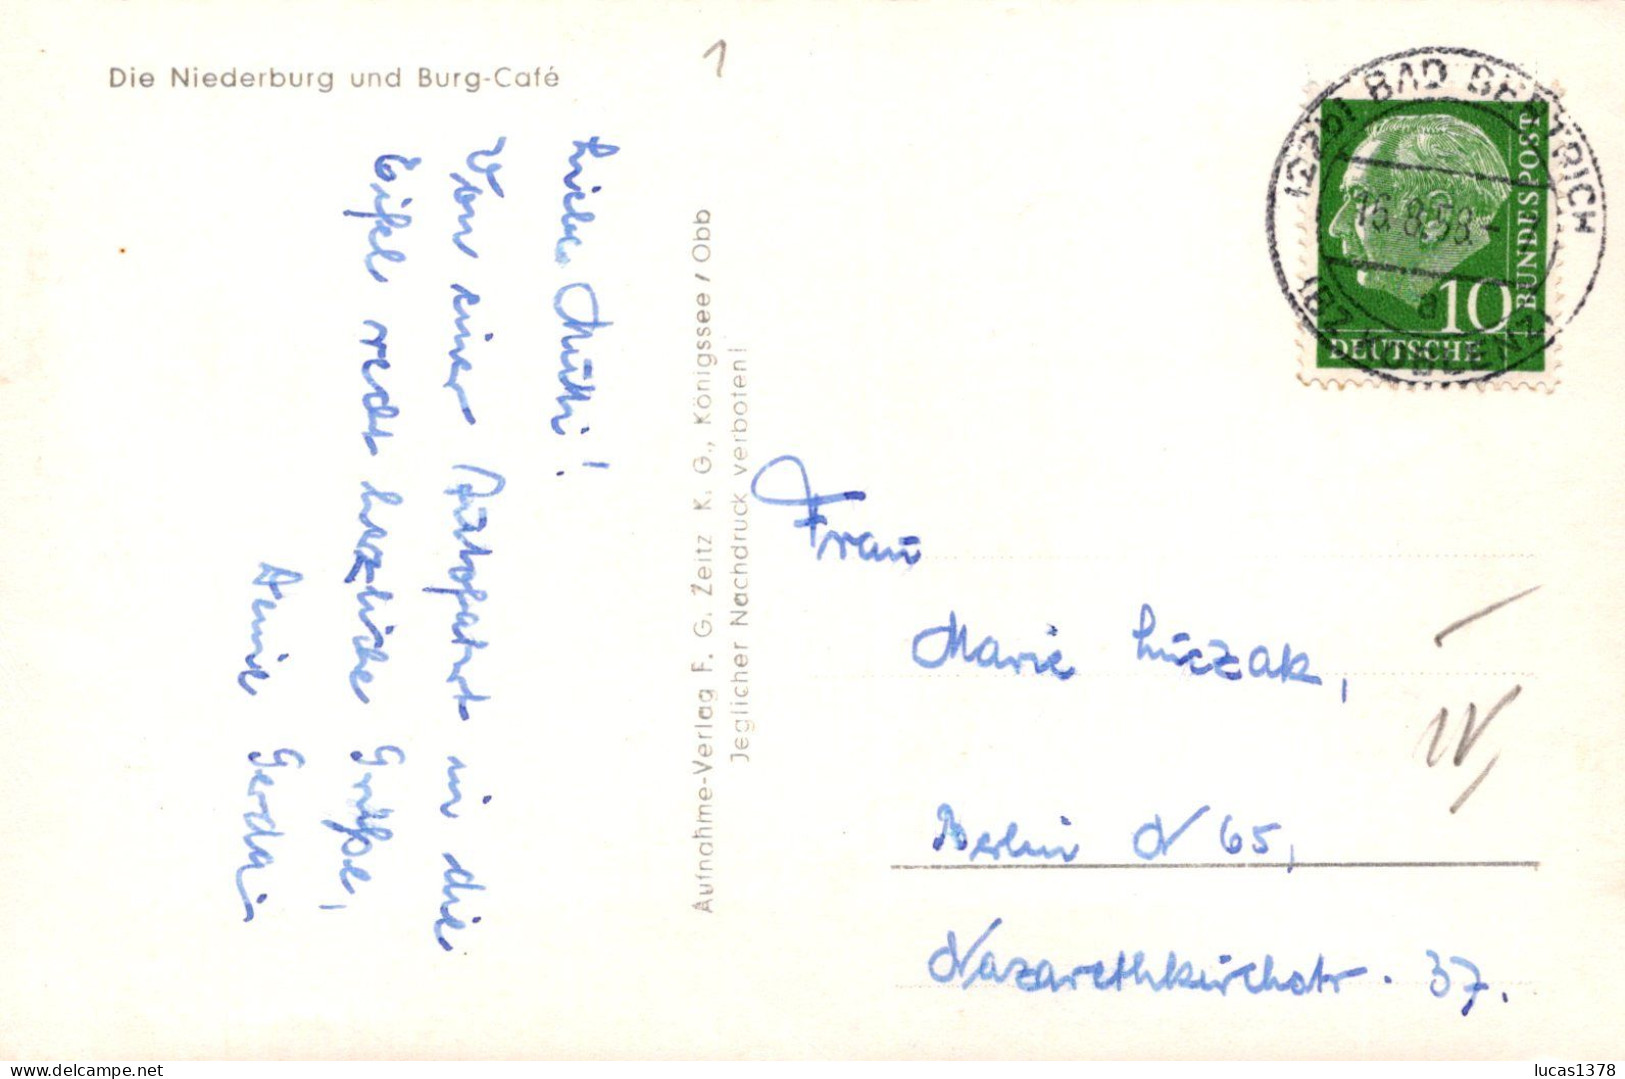 Die Niederburg und Burg-Café
1
Liebe Mutti!
Von einer Autofahrt in die
Eifel recht herzliche Grüße,
Deine Gerda
Aufnahme-Verlag F. G. Zeitz K. G., Königssee / Obb
Jeglicher Nachdruck verboten!
(22b) BAD BERTRICH
16.8.58.-
a
(BZ KOBLENZ)
10
DEUTSCHE
BUNDESPOST
Frau
Marie Luczak,
Berlin N 65,
Nazarethkirchstr. 37.
delcampe.net
lucas1378